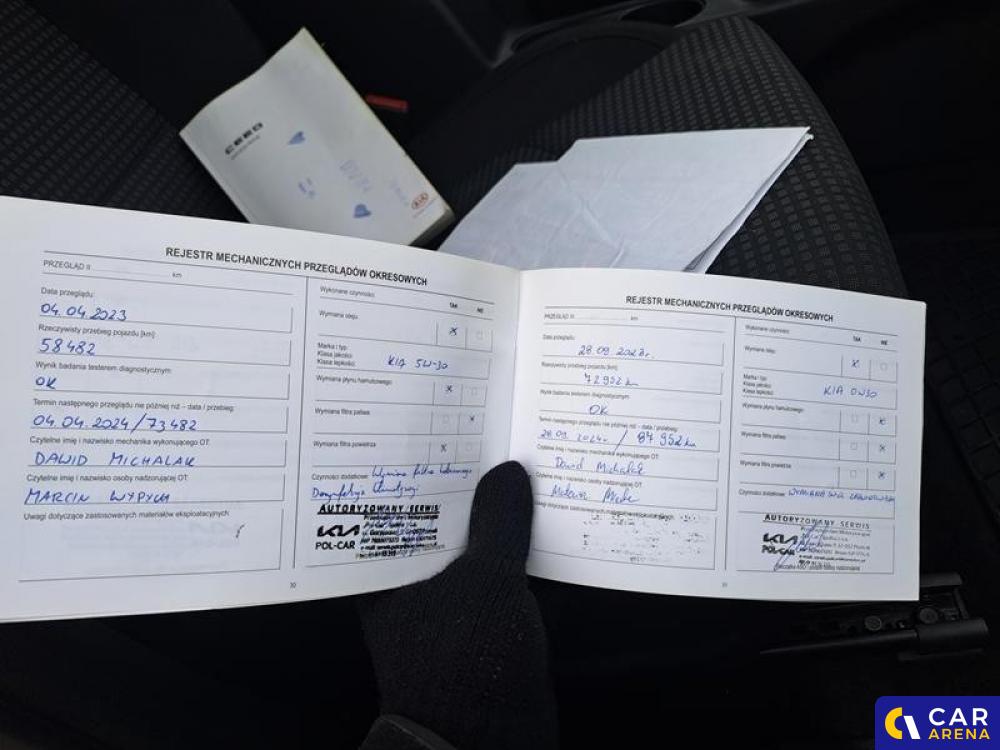 CEED
KIA
REJESTR MECHANICZNYCH PRZEGLĄDÓW OKRESOWYCH
PRZEGLĄD km
Data przeglądu:
04.04.2023
Rzeczywisty przebieg pojazdu [km]:
58482
Wynik badania testerem diagnostycznym:
OK
Termin następnego przeglądu nie później niż – data / przebieg:
04.04.2024/73482
Czytelne imię i nazwisko mechanika wykonującego OT:
DAWID MICHALAK
Czytelne imię i nazwisko osoby nadzorującej OT:
MARCIN WYPYCH
Uwagi dotyczące zastosowanych materiałów eksploatacyjnych:
30
Wykonane czynności:
TAK NIE
Wymiana oleju:
x
Marka i typ:
Klasa jakości:
Klasa lepkości:
KIA 5W-30
Wymiana płynu hamulcowego:
x
Wymiana filtra paliwa:
x
Wymiana filtra powietrza:
x
Czynności dodatkowe: Wymiana filtra
AUTORYZOWANY SERWIS
KIA
POL-CAR
REJESTR MECHANICZNYCH PRZEGLĄDÓW OKRESOWYCH
PRZEGLĄD km
Data przeglądu:
28.09.2023r.
Rzeczywisty przebieg pojazdu [km]:
72952km
Wynik badania testerem diagnostycznym:
OK
Termin następnego przeglądu nie później niż – data / przebieg:
28.09.2024r / 87952km
Czytelne imię i nazwisko mechanika wykonującego OT:
Dawid Michalak
Czytelne imię i nazwisko osoby nadzorującej OT:
Uwagi dotyczące zastosowanych materiałów eksploatacyjnych:
31
Wykonane czynności:
TAK NIE
Wymiana oleju:
x
Marka i typ:
Klasa jakości:
Klasa lepkości:
KIA 0W30
Wymiana płynu hamulcowego:
x
Wymiana filtra paliwa:
x
Wymiana filtra powietrza:
x
Czynności dodatkowe:
AUTORYZOWANY SERWIS
KIA
POL-CAR
CAR
ARENA